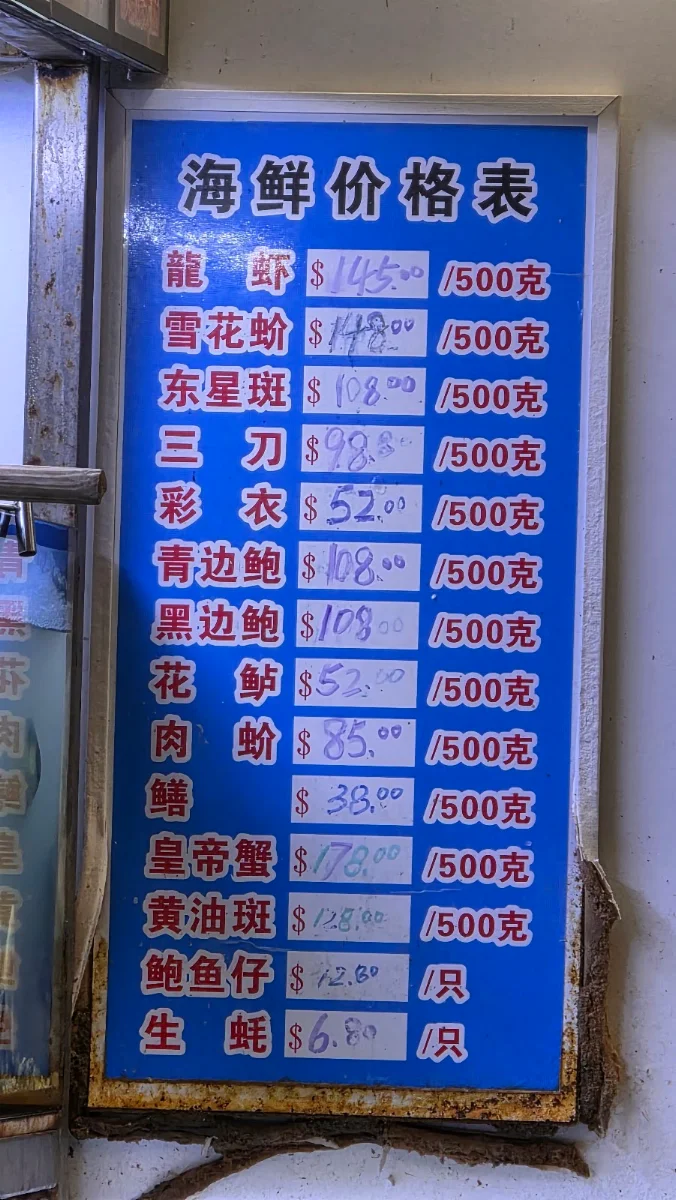 海鲜价格表
龍虾 $145.00 /500克
雪花蚧 $148.00 /500克
东星斑 $108.00 /500克
三刀 $98.80 /500克
彩衣 $52.00 /500克
青边鲍 $108.00 /500克
黑边鲍 $108.00 /500克
花鲈 $52.00 /500克
肉蚧 $85.00 /500克
鳝 $38.00 /500克
皇帝蟹 $178.00 /500克
黄油斑 $128.00 /500克
鲍鱼仔 $12.80 /只
生蚝 $6.80 /只